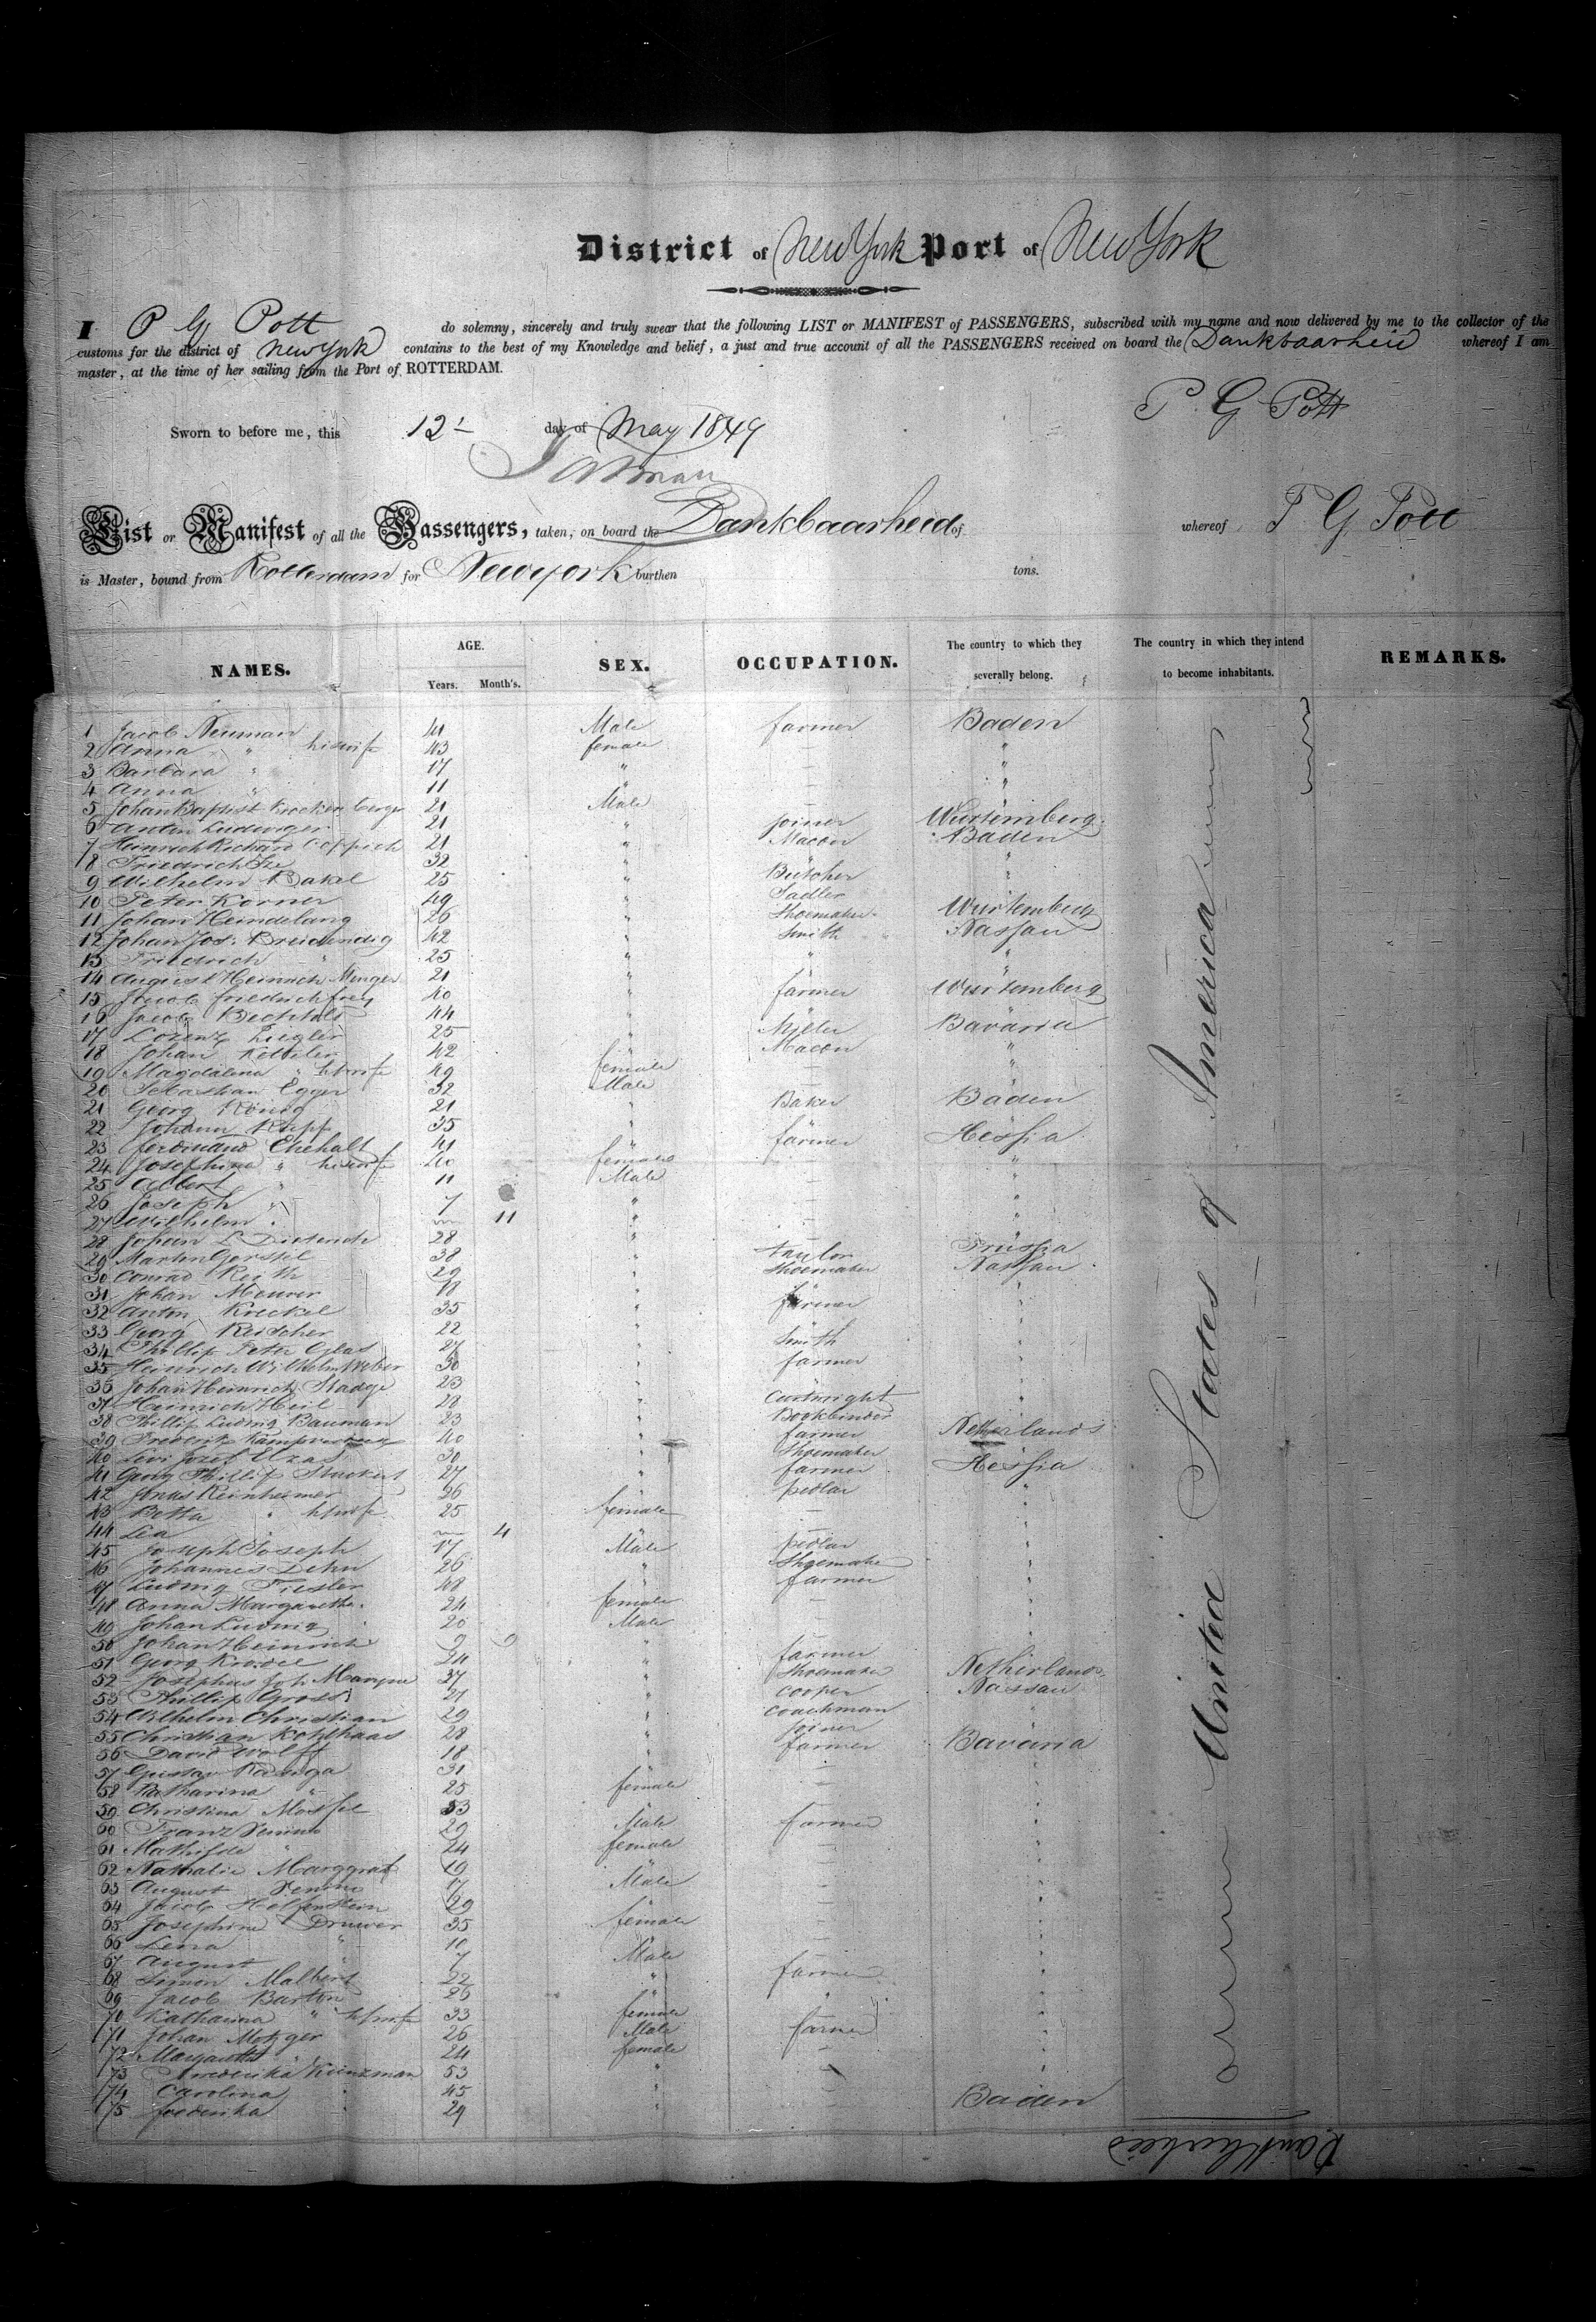 District of New York Port of New York
I P G Pott do solemny, sincerely and truly swear that the following LIST or MANIFEST of PASSENGERS, subscribed with my name and now delivered by me to the collector of the
customs for the district of New York contains to the best of my Knowledge and belief, a just and true account of all the PASSENGERS received on board the Dankbaarheid whereof I am
master, at the time of her sailing from the Port of ROTTERDAM.
P. G Pott
Sworn to before me, this 12 day of May 1849
List or Manifest of all the Passengers, taken, on board the Dankbaarheid of whereof P G Pott
is Master, bound from Rotterdam for New york burthen tons.
NAMES. AGE. Years. Month's. SEX. OCCUPATION. The country to which they severally belong. The country in which they intend to become inhabitants. REMARKS.
1 Jacob Neuman 41 Male farmer Baden
2 Anna " his wife 43 female — "
3 Barbara " 17 " — "
4 Anna " 11 " — "
5 Johan Baptist 21 Male — "
6 Anton Ludwiger 21 " joiner Wurtemberg
7 Heinrich Richard 21 " Macon Baden
8 Friedrich 32 " " "
9 Wilhelm Bakel 25 " Butcher "
10 Peter Korner 49 " Sadler
11 Johan Heindelang 26 " Shoemaker Wurtemberg
12 Johan Jos: 42 " Smith Nassau
13 Friedrich " 25 " " "
14 August Heinrich Menger 21 " " "
15 Jacob friedrich frey 40 " farmer Wurtemberg
16 Jacob 44 " "
17 Lorenz Ziegler 25 " Bavaria
18 Johan 42 " Macon "
19 Magdalena " wife 49 female — "
20 Sebastian Egger 32 Male — "
21 Georg König 21 " Baker Baden
22 Johann Rupp 35 " "
23 ferdinand Ehehalt 41 " farmer Hessia
24 Josephina " his wife 40 female — "
25 Albert " 11 Male — "
26 Joseph " 7 " — "
27 Wilhelm " 11 " — "
28 Johan L 28 "
29 Martin 38 " taylor Prussia
30 Conrad Reith 29 " Shoemaker Nassau
31 Johan Meurer 18 " "
32 Anton Kreckel 35 " farmer "
33 Georg Reischer 22 " "
34 Phillip Peter Glas 27 " Smith "
35 Heinrich Wilhelm Weber 30 " farmer "
36 Johan Heinrich Stadge 23 " "
37 Heinrich Heil 28 " cartwright "
38 Phillip Ludwig Bauman 23 " Bookbinder "
39 Frederik 40 " farmer Netherlands
40 Levi Josef Elzas 30 " Shoemaker
41 Georg Phillip 27 " farmer Hessia
42 Jonas Reinheimer 26 " pedlar "
43 Betta " wife 25 female — "
44 Lea " 4 " — "
45 Joseph Joseph 17 Male pedlar "
46 Johannes Dehn 26 " Shoemake "
47 Ludwig 48 " farmer "
48 Anna Margaretha 24 female — "
49 Johan Ludwig 20 Male "
50 Johan Heinrich 9 "
51 Georg 24 " farmer "
52 Josephus Joh 37 " Shoemaker Netherlands
53 Phillip Gross 21 " cooper Nassau
54 Wilhelm Christian 29 " coachman "
55 Christian Kohlhaas 28 " joiner "
56 David Wolff 18 " farmer Bavaria
57 Gustav 31 " — "
58 Katharina " 25 female — "
59 Christina 53 " — "
60 Franz 29 Male farmer "
61 Mathilde " 24 female — "
62 Nathalie Marggraf 19 " — "
63 August 17 Male — "
64 Jacob 29 " — "
65 Josephine 35 female — "
66 Lena " 10 " — "
67 August " 7 Male — "
68 Simon Malbert 22 " farmer "
69 Jacob Barton 26 " " "
70 Katharina " wife 33 female "
71 Johan Metzger 26 Male farmer "
72 Margaretha " 24 female — "
73 Frederika Kunzman 53 " — "
74 Carolina " 45 " —
75 frederika " 29 " — Baden
United States of America
Dankbaarheid